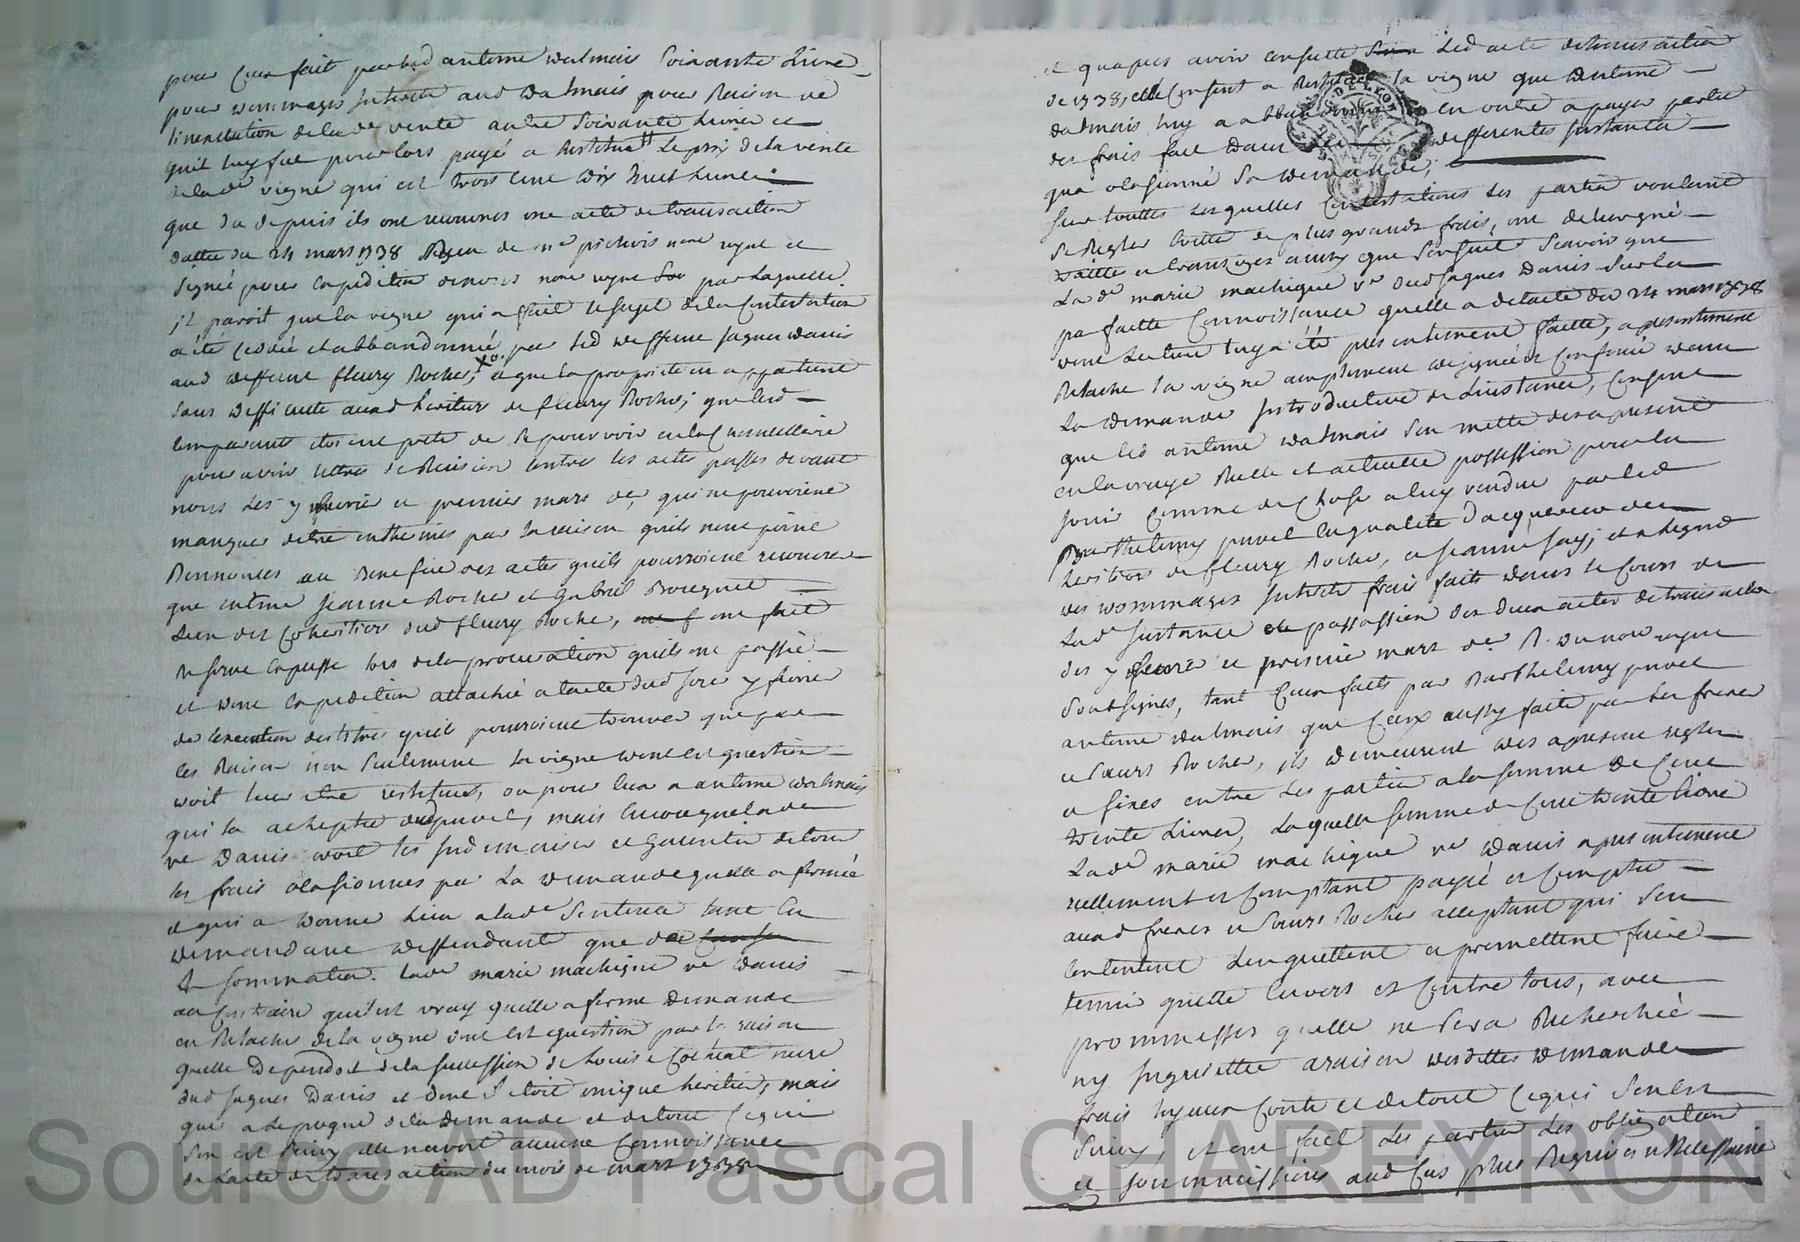 pour ceux fait par led antoine dalmais soixante livre
pour dommages interets aud dalmais pour raison de
linexecution de lade vente autre soixante livres et
quil luy fut pour lors payé a restituer le prix de la vente
de lade vigne qui est trois cent dix huit livres
que du depuis ils ont recouvres une acte de transaction
datté du 24 mars 1738 Reçu de me pichois nore royal et
signée pour expedition de nous nore royal par laquelle
il paroit que la vigne qui a fait le sujet de la contestation
a été cedée et abbandonnée par led deffunt jaques Danis
aud deffunt fleury Rocher, et que la proprieté en appartient
sans difficulté auxd heritiers de fleury Rocher; que lesd
comparants etoient prets de se pourvoir en la chancellerie
pour avoir lettres de Rescision contre les actes passés devant
nous les y fevrier et premier mars der, qui ne pouvoient
manquer detre entherinés par la raison quils nont point
Renoncés au Benefice des actes quils pourroient recouvrer
que même jeanne Rocher et gabriel Bourgnet
lun des coheritiers dud fleury Roche, ont fait
Reserve expresse lors de la procuration quils ont passée
et dont expedition attachée a lacte dud jour y fevrier
de lexecution des titres quils pourroient trouver que par
ces Raison non seulement la vigne dont est question
doit leur etre restituée, ou pour eux a antoine dalmais
qui la acheptée dud puvel, mais encore que lade
ve Danis doit les indemniser et garentir de tous
les frais ocasionnes par la demande quelle a formée
et qui a donné lieu a lade sentence tant en
demandant deffendant que de
la sommation. lade marie machique ve Danis
au contraire quil est vray quelle a formé demande
en Relache de la vigne dont est question par la raison
quelle dependoit de la succession de Louise mere
dud jaques Danis et dont il etoit unique heritier, mais
que a lepoque de la demande et de tout ce qui
sen est suivy elle navoit aucune connoissance
de lacte de transaction du mois de mars 1738
et quapres avoir consulté led acte de transaction
de 1738, elle consent a Restituer la vigne que antoine
dalmais luy a abbandonnée en outre a payer partie
des frais fait dans differentes instances
qua ocasionné sa demande;
sur touttes lesquelles contestations les parties voulant
se Regler eviter de plus grands frais, ont delivré
traitté et transigés ainsy que sensuit scavoir que
la de marie machique ve dud jaques Danis sur la
parfaitte connoissance quelle a de lacte du 24 mars 1738
dont lecture luy a été presentement faitte, a presentement
Relaché la vigne amplement designée et confinée dans
la demande introductive de linstance, consent
que led antoine dalmais sen mette des a present
en la vraye Reelle et actuelle possession pour en
jouir comme de chose a luy vendue par led
Barthelemy puvel en qualité dacquereur des
heritiers de fleury Rocher, et jeanne fay; et a legard
des dommages interets frais faits dans le cours de
lade instance et passassion des deux actes de transaction
des y fevrier et premier mars der R. du nore royal
soussignés, tant ceux faits par Barthelemy puvel
antoine dalmais que ceux aussy faits par les freres
et sœurs Rocher, ils demeurent des a present reglés
et fixés entre les parties a la somme de cent
trente livres, laquelle somme de cent trente livres
la de marie machique ve Danis a presentement
reellement et comptant payée et comptée
auxd freres et sœurs Rocher acceptant qui sen
contentent len quittent et promettent faire
tenir quitte envers et contre tous, avec
prommesses quelle ne sera Recherchée
ny inquiettée a raison desdittes demandes
frais loyaux couts et de tout ce qui sen est
suivy, et ont fait les parties les obligations
et soummissions aud cas plus Requis et Necessaire
Source AD Pascal CHAREYRON